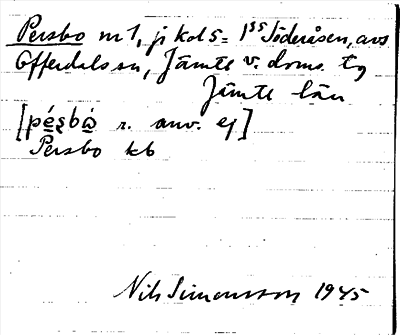 Persbo nr 1, ji kol 5 = 1 35 Söderåsen, avs
Offerdals sn, Jämtl v. doms. tg
Jämtl län
[péʂbɷ̀ r. anv. ej]
Persbo kb
Nils Simonsson 1945